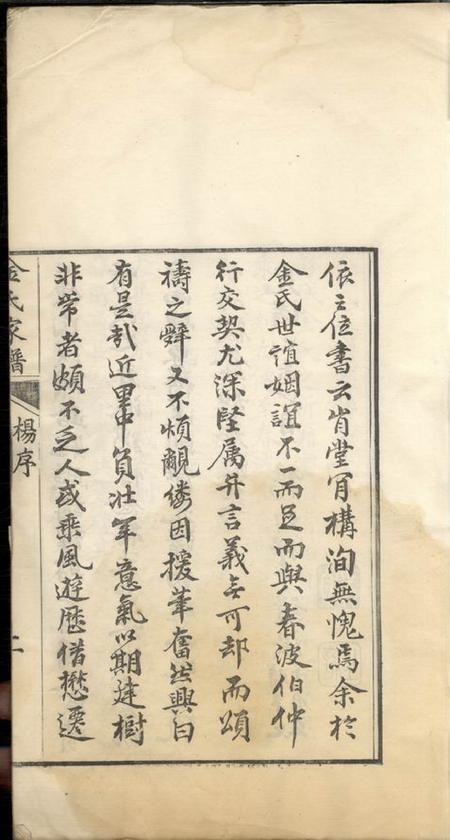 依之位書云肯堂肯構洵無愧焉余於
金氏世誼姻誼不一而足而與春波伯仲
行交契尤深堅属弁言義無可却而頌
禱之辭又不煩覼縷因援筆奮然興曰
有是哉近里中負壯年意氣以期建樹
非常者頗不乏人或乘風遊歷借懋遷
金氏家譜
楊序
二